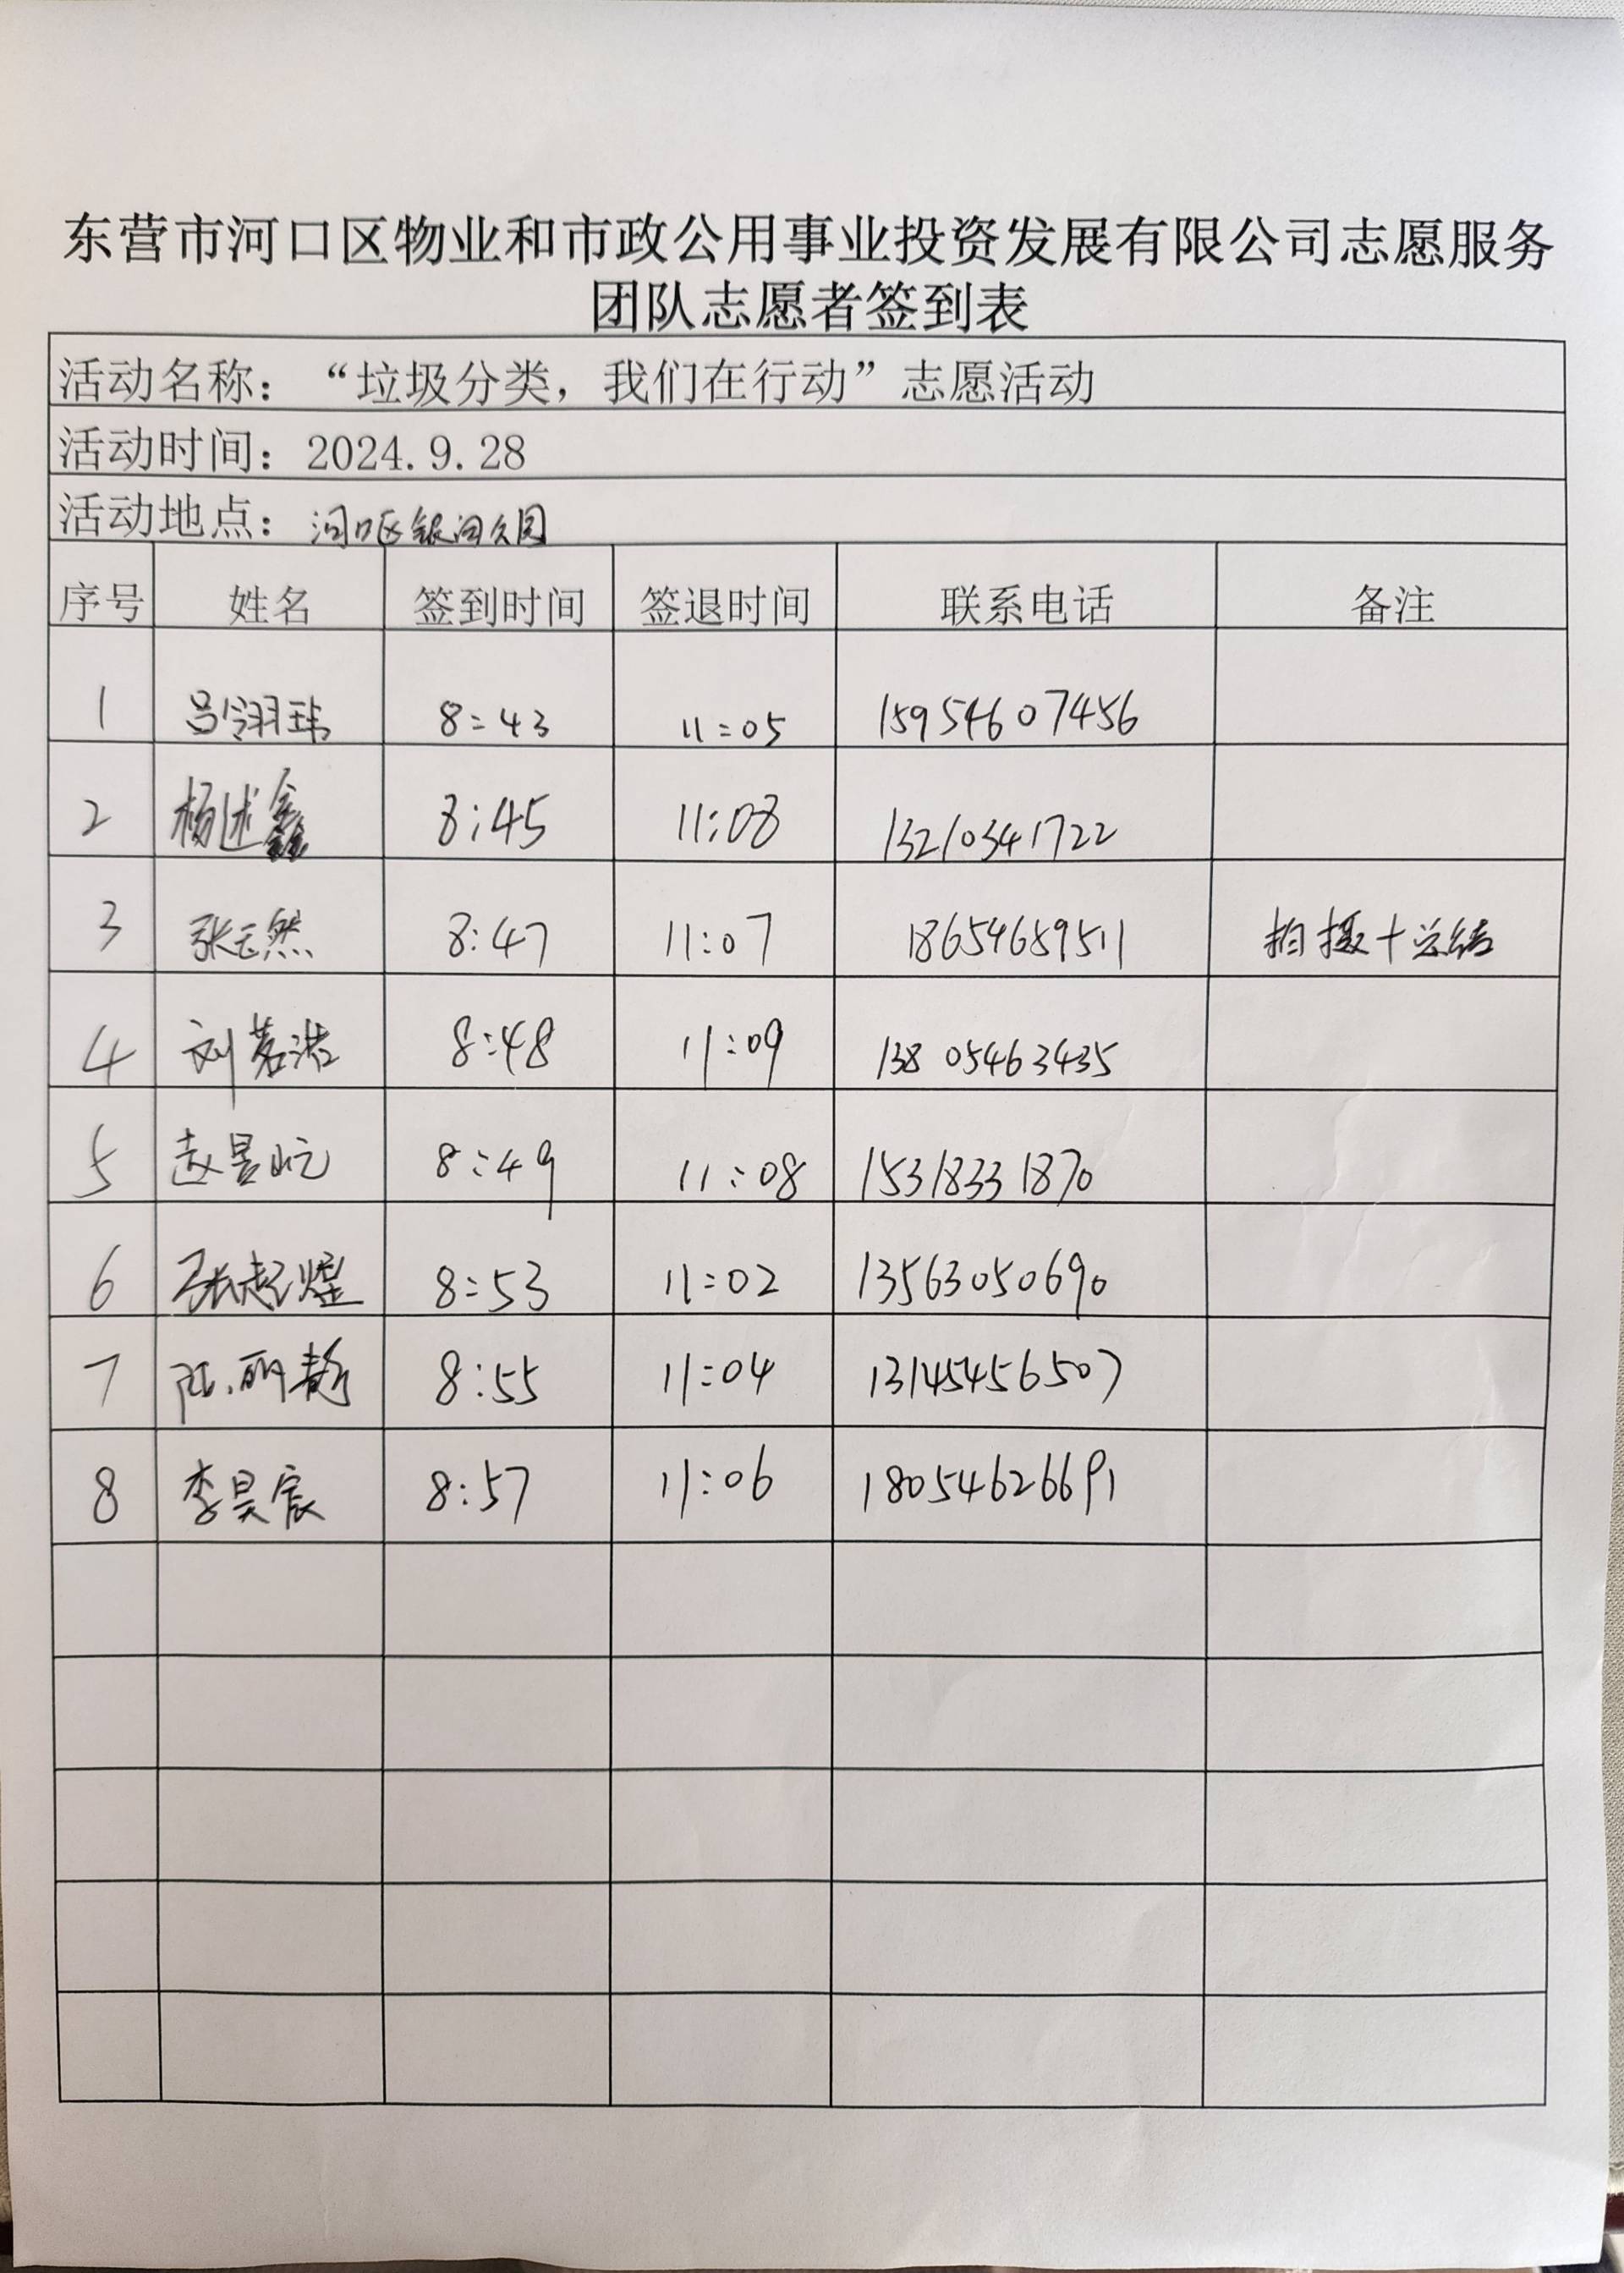 东营市河口区物业和市政公用事业投资发展有限公司志愿服务
团队志愿者签到表
活动名称：“垃圾分类，我们在行动”志愿活动
活动时间：2024.9.28
活动地点：河口区银河公园
序号 姓名 签到时间 签退时间 联系电话 备注
1 吕翎玮 8:43 11:05 15954607456
2 杨述鑫 8:45 11:08 13210341722
3 张云然 8:47 11:07 18654689511 拍摄+总结
4 刘茗浩 8:48 11:09 13805463435
5 赵昱屹 8:49 11:08 15318331870
6 张起煜 8:53 11:02 13563050690
7 陈丽静 8:55 11:04 13145456507
8 李昊宸 8:57 11:06 18054626691